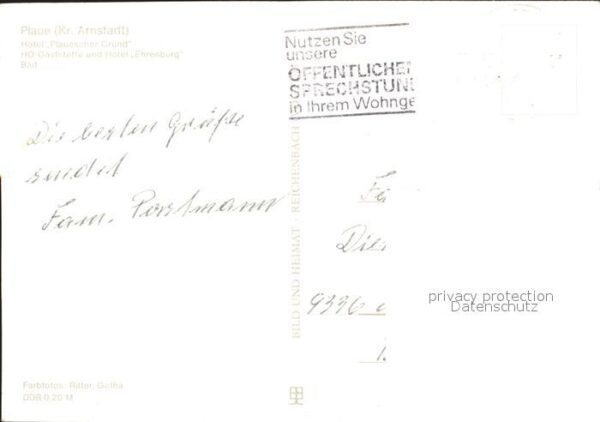 Plaue (Kr. Arnstadt)
Hotel „Plauescher Grund"
HO-Gaststätte und Hotel „Ehrenburg"
Bad
Nutzen Sie
unsere
ÖFFENTLICHEN
SPRECHSTUN
in Ihrem Wohnge
Die besten Grüße
sendet
Fam. Portmann
BILD UND HEIMAT · REICHENBACH
Fa
Die
9336
privacy protection
Datenschutz
Farbfotos: Ritter, Gotha
DDR 0,20 M